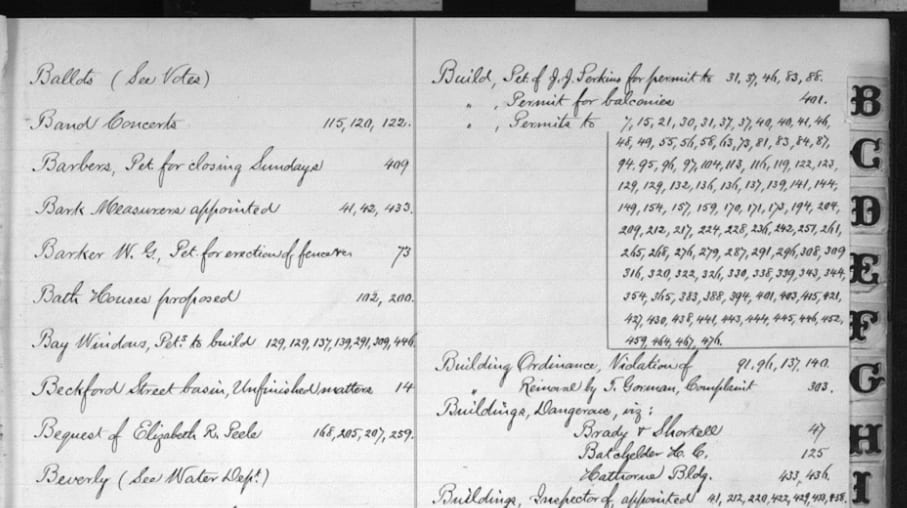 Ballots (See Votes)
Band Concerts 115, 120, 122.
Barbers, Pet. for closing Sundays 409
Bark Measurers appointed 41, 42, 433.
Barker W. G., Pet. for erection of fence 73
Bath Houses proposed 102, 200.
Bay Windows, Pets to build 129, 129, 137, 139, 291, 309, 446
Beckford Street basin, Unfinished matters 14
Bequest of Elizabeth R. Peele 168, 205, 207, 259.
Beverly (See Water Dept.)
Build, Pet. of J. J. Perkins for permit to 31, 37, 46, 83, 88.
" , Permit for balconies 401.
" , Permits to 7, 15, 21, 30, 31, 37, 37, 40, 40, 41, 46,
48, 49, 55, 56, 58, 63, 73, 81, 83, 84, 87,
94, 95, 96, 97, 104, 113, 116, 119, 122, 123,
129, 129, 132, 136, 136, 137, 139, 141, 144,
149, 154, 157, 159, 170, 171, 173, 194, 204,
209, 212, 217, 224, 228, 236, 242, 251, 261,
265, 268, 276, 279, 287, 291, 296, 308, 309
316, 320, 322, 326, 330, 338, 339, 343, 344,
354, 365, 383, 388, 394, 401, 403, 415, 421,
427, 430, 438, 441, 443, 444, 445, 446, 452,
459, 464, 467, 476.
Building Ordinance, Violation of 91, 96, 137, 140.
" Removal by T. Gorman, Complaint 303.
Buildings, Dangerous, viz:
Brady & Shortell 47
Batchelder H. C. 125
Hathorne Bldg. 433, 436.
Buildings, Inspector of, appointed 41, 212, 220, 422, 429,
B
C
D
E
F
G
H
I